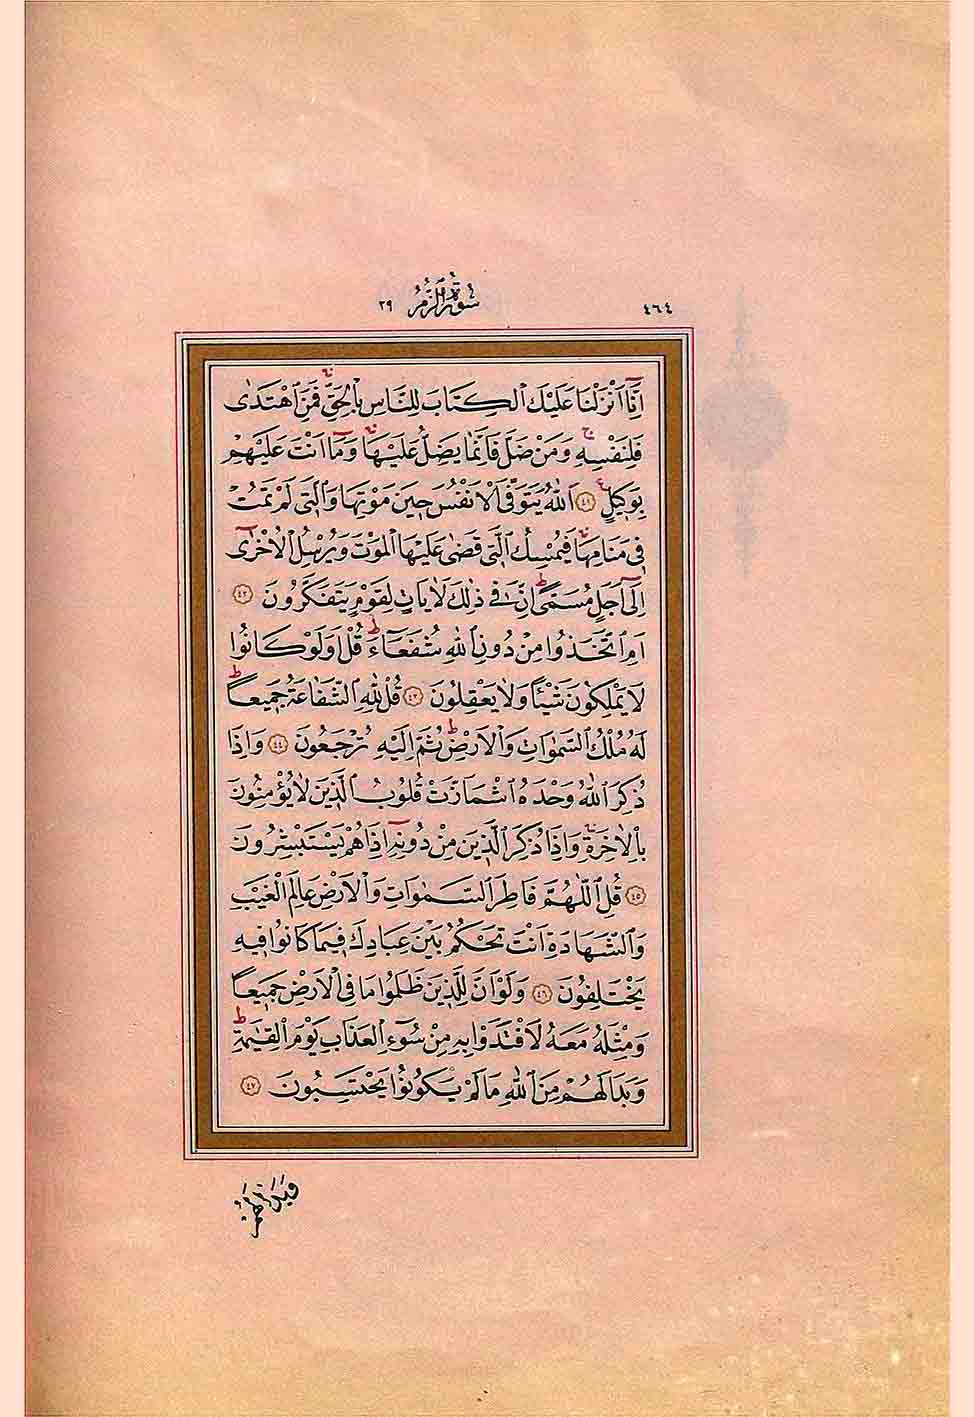 ٤٦٤ سُورَةُ الزُّمَرِ ٣٩
اِنَّٓا اَنْزَلْنَا عَلَيْكَ الْكِتَابَ لِلنَّاسِ بِالْحَقِّۚ فَمَنِ اهْتَدٰى
فَلِنَفْسِه۪ۚ وَمَنْ ضَلَّ فَاِنَّمَا يَضِلُّ عَلَيْهَاۚ وَمَٓا اَنْتَ عَلَيْهِمْ
بِوَك۪يلٍ۟ ﴿٤١﴾ اَللّٰهُ يَتَوَفَّى الْاَنْفُسَ ح۪ينَ مَوْتِهَا وَالَّت۪ي لَمْ تَمُتْ
ف۪ي مَنَامِهَاۚ فَيُمْسِكُ الَّت۪ي قَضٰى عَلَيْهَا الْمَوْتَ وَيُرْسِلُ الْاُخْرٰٓى
اِلٰٓى اَجَلٍ مُسَمًّىۜ اِنَّ ف۪ي ذٰلِكَ لَاٰيَاتٍ لِقَوْمٍ يَتَفَكَّرُونَ ﴿٤٢﴾
اَمِ اتَّخَذُوا مِنْ دُونِ اللّٰهِ شُفَعَٓاءَۜ قُلْ اَوَلَوْ كَانُوا
لَا يَمْلِكُونَ شَيْـًٔا وَلَا يَعْقِلُونَ ﴿٤٣﴾ قُلْ لِلّٰهِ الشَّفَاعَةُ جَم۪يعًاۜ
لَهُ مُلْكُ السَّمٰوَاتِ وَالْاَرْضِۜ ثُمَّ اِلَيْهِ تُرْجَعُونَ ﴿٤٤﴾ وَاِذَا
ذُكِرَ اللّٰهُ وَحْدَهُ اشْمَاَزَّتْ قُلُوبُ الَّذ۪ينَ لَا يُؤْمِنُونَ
بِالْاٰخِرَةِۚ وَاِذَا ذُكِرَ الَّذ۪ينَ مِنْ دُونِه۪ٓ اِذَا هُمْ يَسْتَبْشِرُونَ
﴿٤٥﴾ قُلِ اللّٰهُمَّ فَاطِرَ السَّمٰوَاتِ وَالْاَرْضِ عَالِمَ الْغَيْبِ
وَالشَّهَادَةِ اَنْتَ تَحْكُمُ بَيْنَ عِبَادِكَ ف۪يمَا كَانُوا ف۪يهِ
يَخْتَلِفُونَ ﴿٤٦﴾ وَلَوْ اَنَّ لِلَّذ۪ينَ ظَلَمُوا مَا فِي الْاَرْضِ جَم۪يعًا
وَمِثْلَهُ مَعَهُ لَافْتَدَوْا بِه۪ مِنْ سُٓوءِ الْعَذَابِ يَوْمَ الْقِيٰمَةِۜ
وَبَدَا لَهُمْ مِنَ اللّٰهِ مَا لَمْ يَكُونُوا يَحْتَسِبُونَ ﴿٤٧﴾